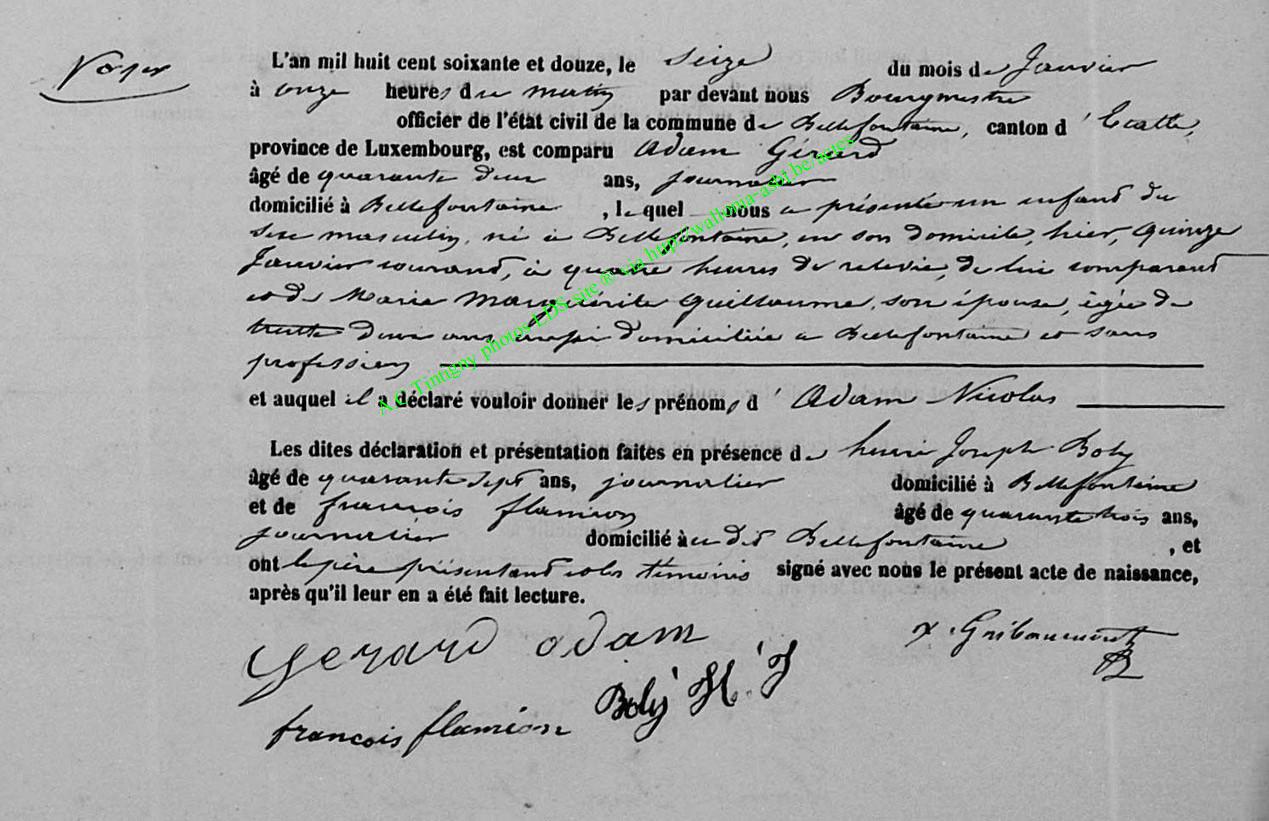 L'an mil huit cent soixante et douze, le seize du mois de Janvier
à onze heures du matin par devant nous Bourgmestre
officier de l'état civil de la commune de Bellefontaine, canton d'Etalle,
province de Luxembourg, est comparu Adam Gérard
âgé de quarante deux ans, journalier
domicilié à Bellefontaine, lequel nous a présenté un enfant du
sexe masculin, né à Bellefontaine, en son domicile, hier, quinze
Janvier courant, à quatre heures de relevée, de lui comparant
et de Marie Marguérite Guillaume, son épouse, âgée de
trente deux ans aussi domiciliée à Bellefontaine et sans
profession
et auquel il a déclaré vouloir donner les prénoms d'Adam Nicolas
Les dites déclaration et présentation faites en présence de henri Joseph Boly
âgé de quarante sept ans, journalier domicilié à Bellefontaine
et de françois flamion âgé de quarante trois ans,
journalier domicilié à u dit Bellefontaine, et
ont le père présentant et les témoins signé avec nous le présent acte de naissance,
après qu'il leur en a été fait lecture.
Gerard adam
Boly H. J
françois flamion
A.C. Tintigny photos LDS site @ via http://wallonia-asbl.be/actes